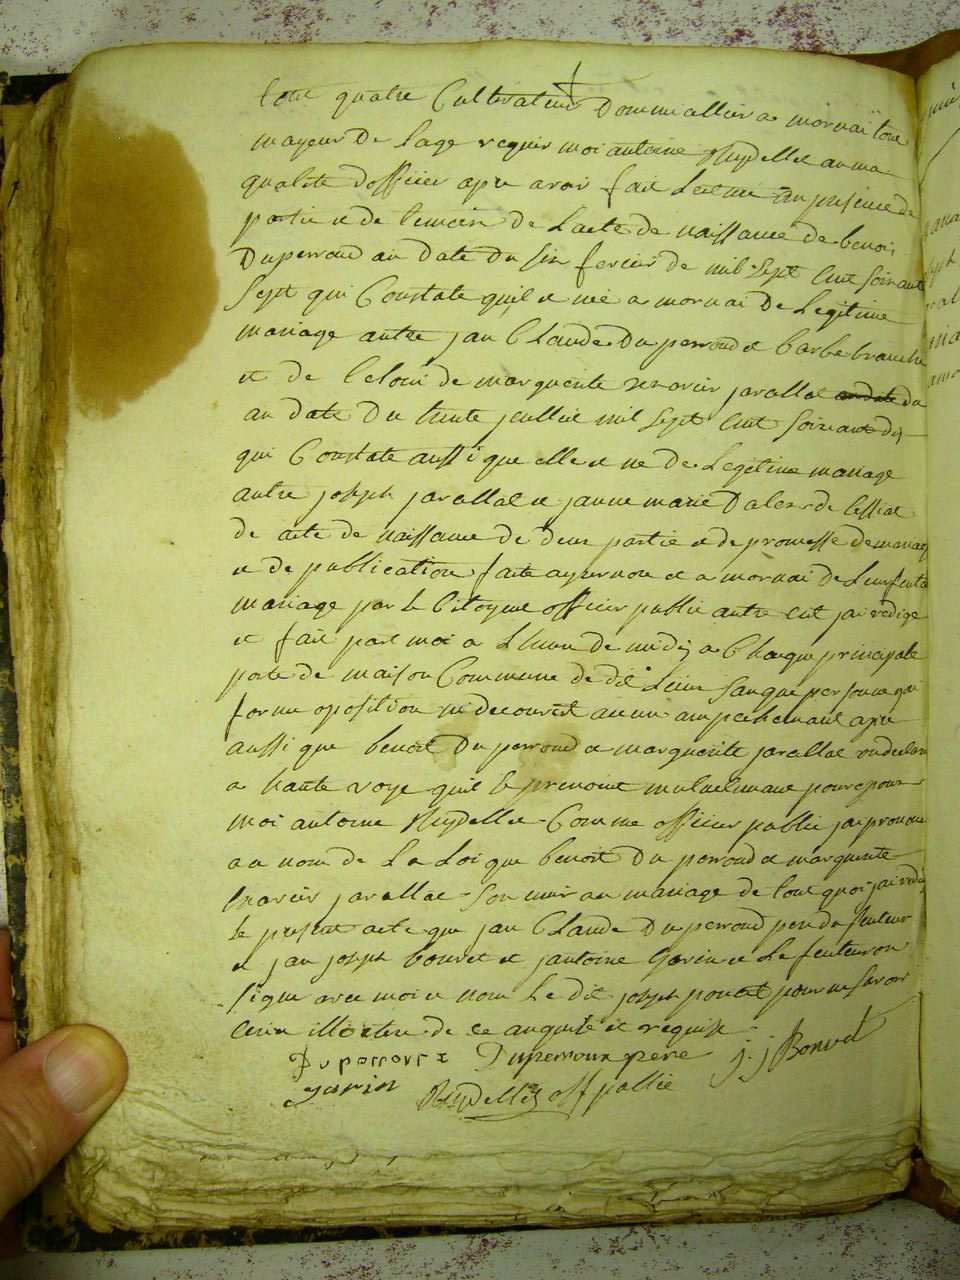 tout quatre Cultivateur Domicallier a mornai tous
mayeur De Lage requis moi antoine Rhydellet an ma
qualite dofficier apre avoir fait Lecture an presence de
partie et de temoin de Lacte de naissance de benoi
Duperroud au Date du six fevrier de mil Sept Cent soixante
Sept qui Constate quil et né a mornai De Legitime
mariage antre jan Claude Duperroud et barbe
et de celoui de marguerite javallat du
au Date Du trente juillet mil Sept Cent soixante dix
qui Constate aussi que elle et ne de Legitime mariage
antre joseph javallat et janne marie
de acte de naissance de deux partie et de promesse de mariage
et de publication faite et a mornai de Leur futur
mariage par le Citoyent officier public antre cut jai redige
et fait part moi a Lheure de midi a Chaque principale
porte de maison Commune de dit Lieux San que personne qui
forme oposition ni decouvert aucun ampechemant apre
aussi que benoit Duperroud et marguerite javallat
a haute voye quil se prenoint mutuelmant pour epoux
moi antoine Rhydellet Comme officier public jai prononce
au nom de La Loi que benoit Duperroud et marguerite
javallat Son unir an mariage de tout quoi jai redige
le present acte que jan Claude Duperroud pere du futeur
et jan joseph bouvet et jantoine Gavin et Le futeur on
signe avec moi et non Le dit joseph poncet pour ne savoir
Cerir de ce anquité et requise
Duperroux Duperroux pere j. j Bouvet
gavin Rhydellet off public